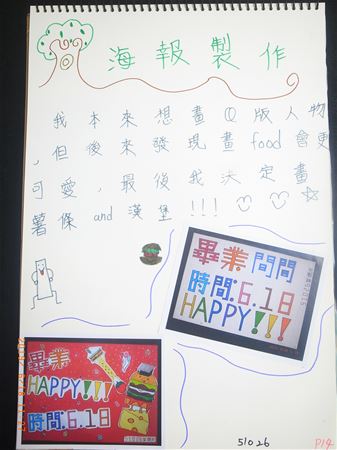 海報製作
我本來想畫Q版人物
，但後來發現畫food會更
可愛，最後我決定畫
薯條and漢堡!!!
畢業問問
時間:6.18
HAPPY!!!
畢業
HAPPY!!!
時間:6.18
51026
P14